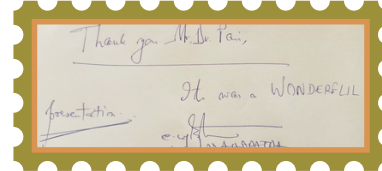 Thank you Mr. Dr. Pai,
It was a WONDERFUL
presentation.